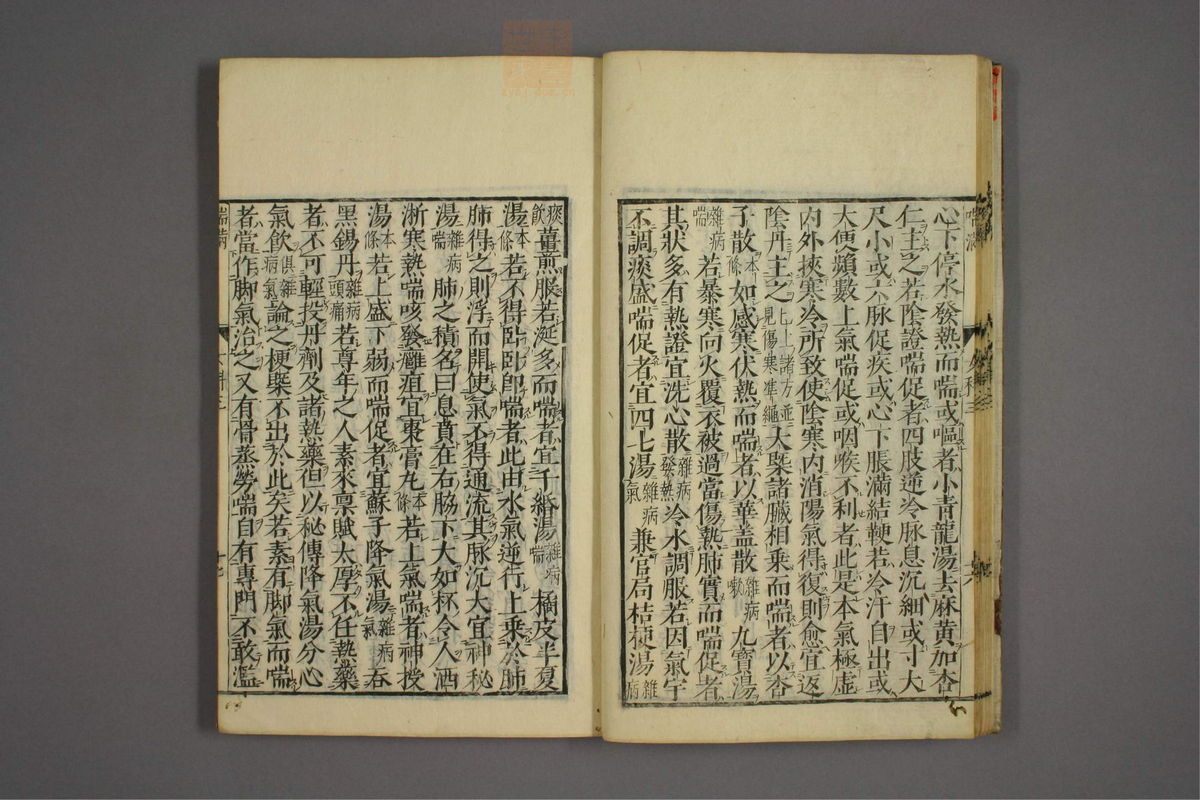 心下停水發熱而喘或嘔者小青龍湯去麻黃加杏
仁主之若陰證喘促者四肢逆冷脉息沉細或寸大
尺小或六脉促疾或心下脹滿結鞕若冷汗自出或
大便頻數上氣喘促或咽喉不利者此是本氣極虛
內外挾寒冷所致使陰寒內消陽氣得復則愈宜返
陰丹主之已上諸方並見傷寒準繩大槩諸臟相乗而喘者以杏
子散本條如感寒伏熱而喘者以華蓋散雜病嗽九寶湯
雜病喘若暴寒向火覆衣被過當傷熱肺實而喘促者
其狀多有熱證宜洗心散雜病發熱冷水調服若因氣宇
不調痰盛喘促者宜四七湯雜病氣兼官局桔梗湯雜病
痰飲薑煎服若涎多而喘者宜千緡湯雜病喘橘皮半夏
湯本條若不得臥臥即喘者此由水氣逆行上乗於肺
肺得之則浮而開使氣不得通流其脉沉大宜神秘
湯雜病喘肺之積名曰息賁在右脇下大如杯令人洒
淅寒熱喘咳發癰疽宜棗膏丸本條若上氣喘者神授
湯本條若上盛下弱而喘促者宜蘇子降氣湯雜病氣春
黑錫丹雜病頭痛若尊年之人素來稟賦太厚不任熱藥
者不可輕投丹劑及諸熱藥但以秘傳降氣湯分心
氣飲俱雜病氣論之梗槩不出於此矣若素有脚氣而喘
者當作脚氣治之又有骨蒸勞喘自有專門不敢濫
喘病
十七